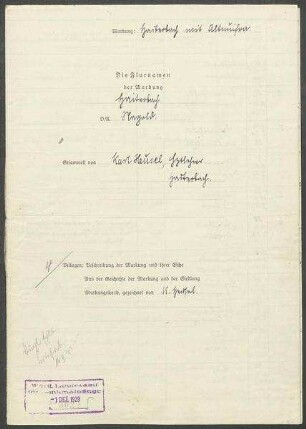 Markung: Haiterbach mit Altnuifra
Die Flurnamen
der Markung
Haiterbach
O.A. Nagold.
Gesammelt von Karl
Haiterbach.
4 Beilagen: Beschreibung der Markung und ihrer Teile
Aus der Geschichte der Markung und der Siedlung
Markungskarte, gezeichnet von K.
Württ. Landesamt
DEZ. 1929